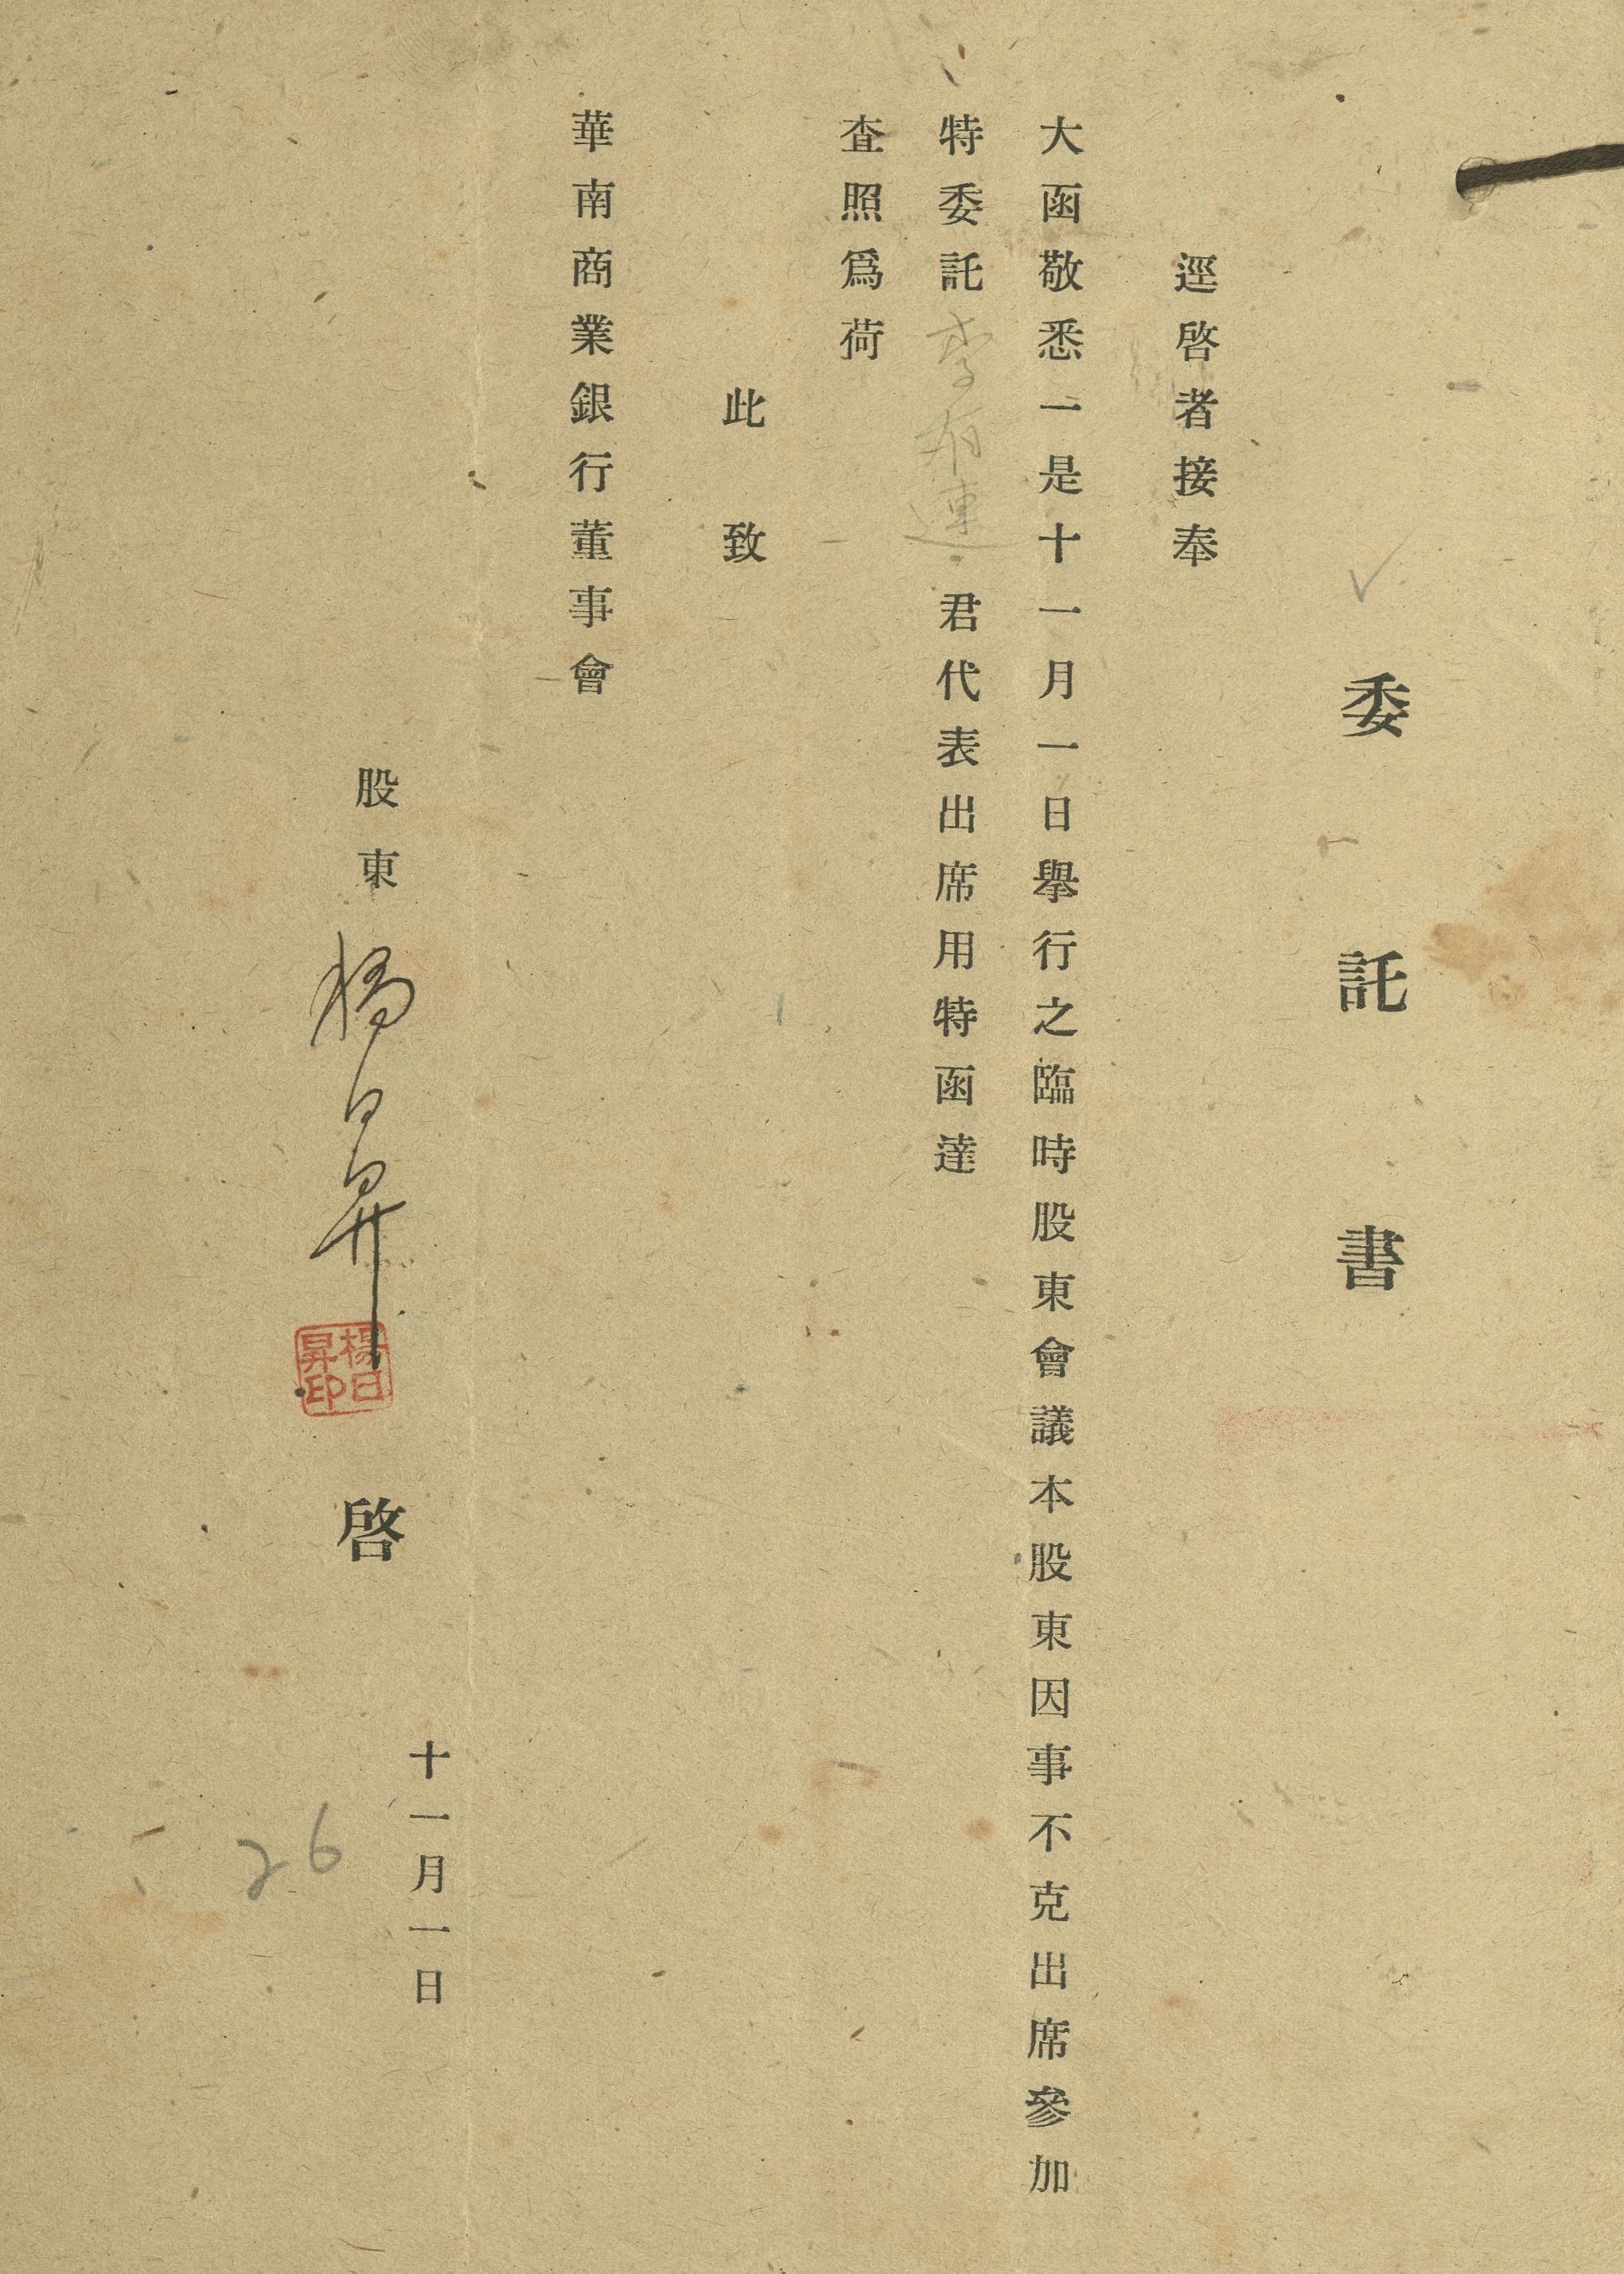 委託書
逕啓者接奉
大函敬悉一是十一月一日舉行之臨時股東會議本股東因事不克出席參加
特委託李連君代表出席用特函達
査照爲荷
此致
華南商業銀行董事會
十一月一日
股東楊日昇啓
楊日昇印
26